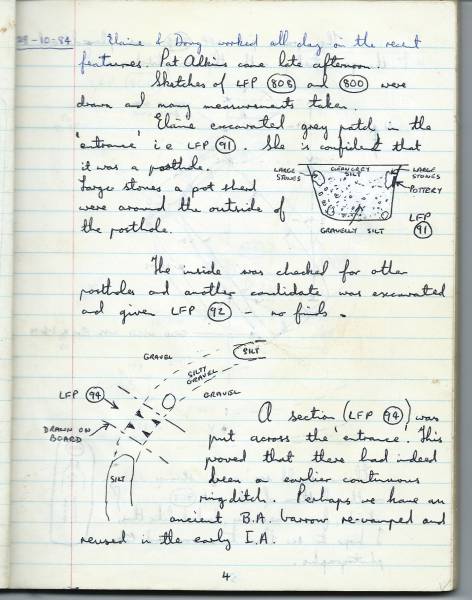 28-10-84 Elaine & Doug worked all day on the recent
features. Pat Alkins came late afternoon.
Sketches of LFP 808 and 800 were
drawn and many measurements taken.
Elaine excavated grey patch in the
'entrance' i.e LFP 91. She is confident that
it was a posthole.
Large stones a pot sherd
were around the outside of
the posthole.
LARGE STONES
CLEAN GREY SILT
LARGE STONES
POTTERY
GRAVELLY SILT
LFP 91
The inside was checked for other
postholes and another candidate was excavated
and given LFP 92 - no finds.
GRAVEL
SILT
SILTY GRAVEL
GRAVEL
LFP 94
DRAWN ON BOARD
SILT
A section (LFP 94) was
put across the 'entrance'. This
proved that there had indeed
been an earlier continuous
ringditch. Perhaps we have an
ancient B.A. barrow re-vamped and
reused in the early I.A.
4